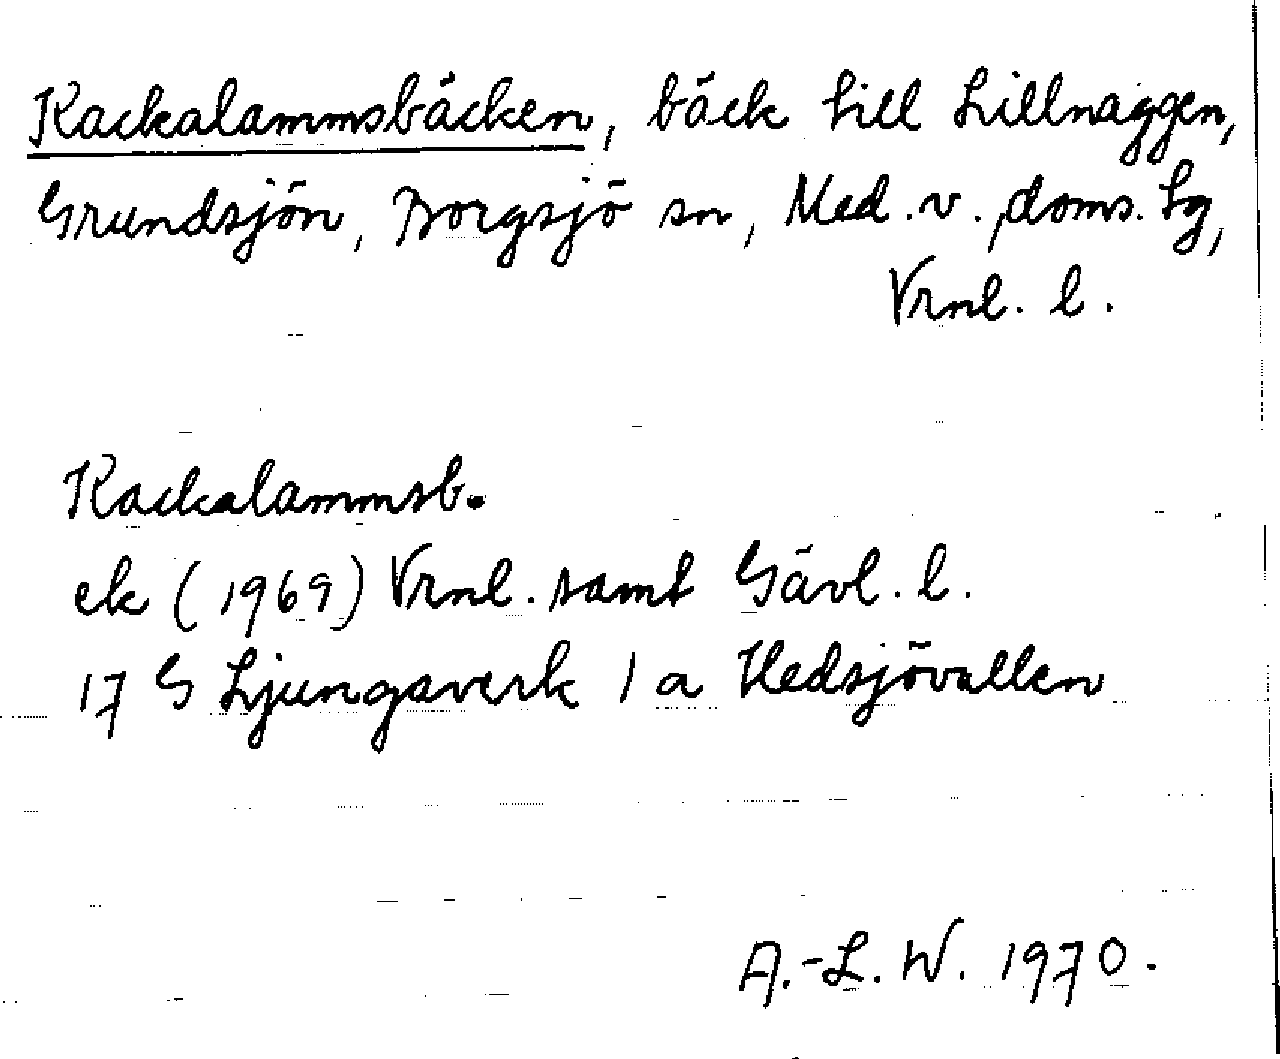 Kackalammsbäcken, bäck till Lillnäggen,
Grundsjön, Borgsjö sn, Med. v. doms. tg,
Vrnl. l.
Kackalammsb.
ek (1969) Vrnl. samt Gävl. l.
17 G Ljungaverk 1 a Hedsjövallen
A.-L. W. 1970.